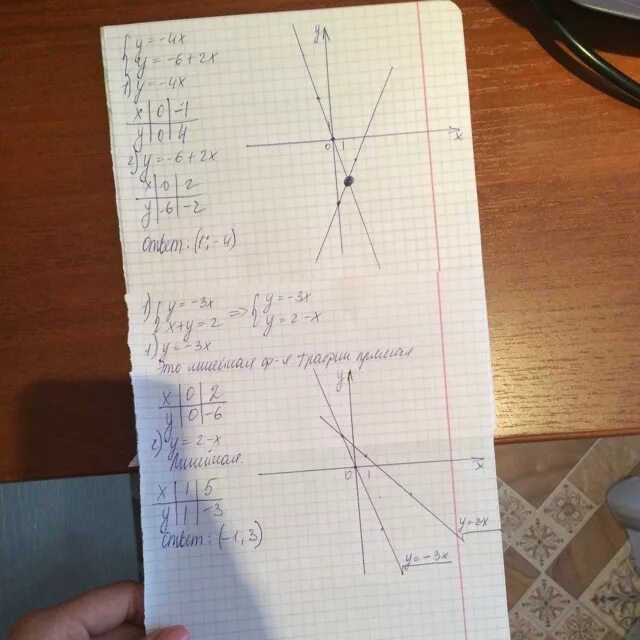 { y = -4x
y = -6+2x
1) y = -4x
x | 0 | -1
y | 0 | 4
2) y = -6+2x
x | 0 | 2
y | -6 | -2
Ответ: (1; -4)
y
0 1 x
1) { y = -3x => { y = -3x
x+y = 2 y = 2-x
1) y = -3x
Это линейная ф-я. График прямая
x | 0 | 2
y | 0 | -6
2) y = 2-x
Линейная.
x | 1 | 5
y | 1 | -3
Ответ: (-1; 3)
y
0 1 x
y = -3x